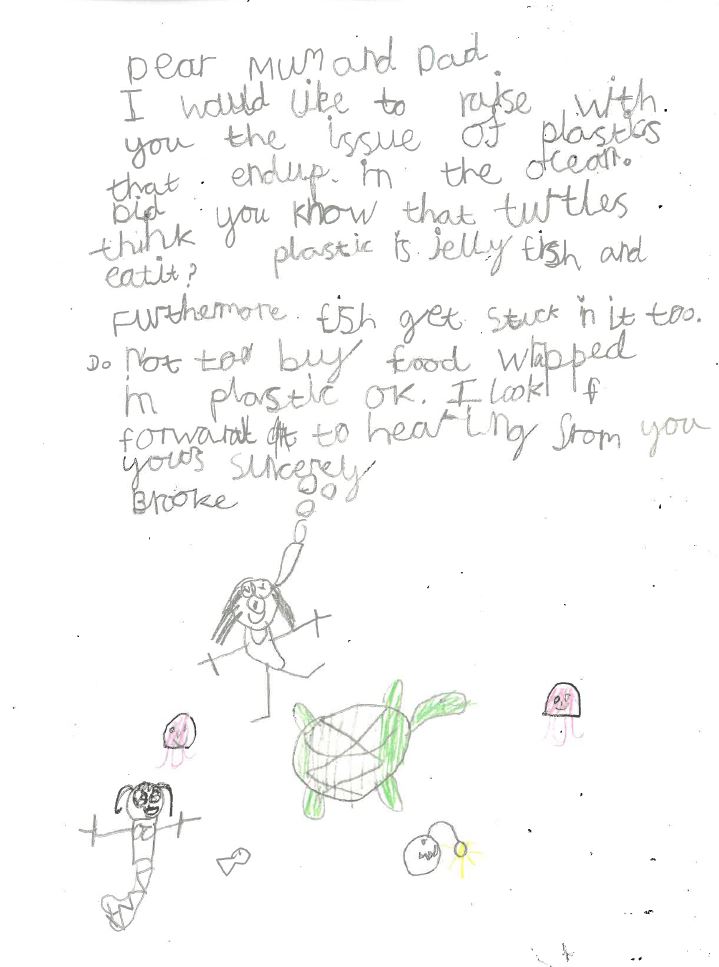 Dear Mum and Dad
I would like to raise with
you the issue of plastics
that endup in the ocean.
Did you know that turtles
think plastic is jelly fish and
eatit?
Furthermore fish get stuck in it too.
Do not buy food wrapped
in plastic ok. I look
forward to hearing from you
yours sincerely
Brooke